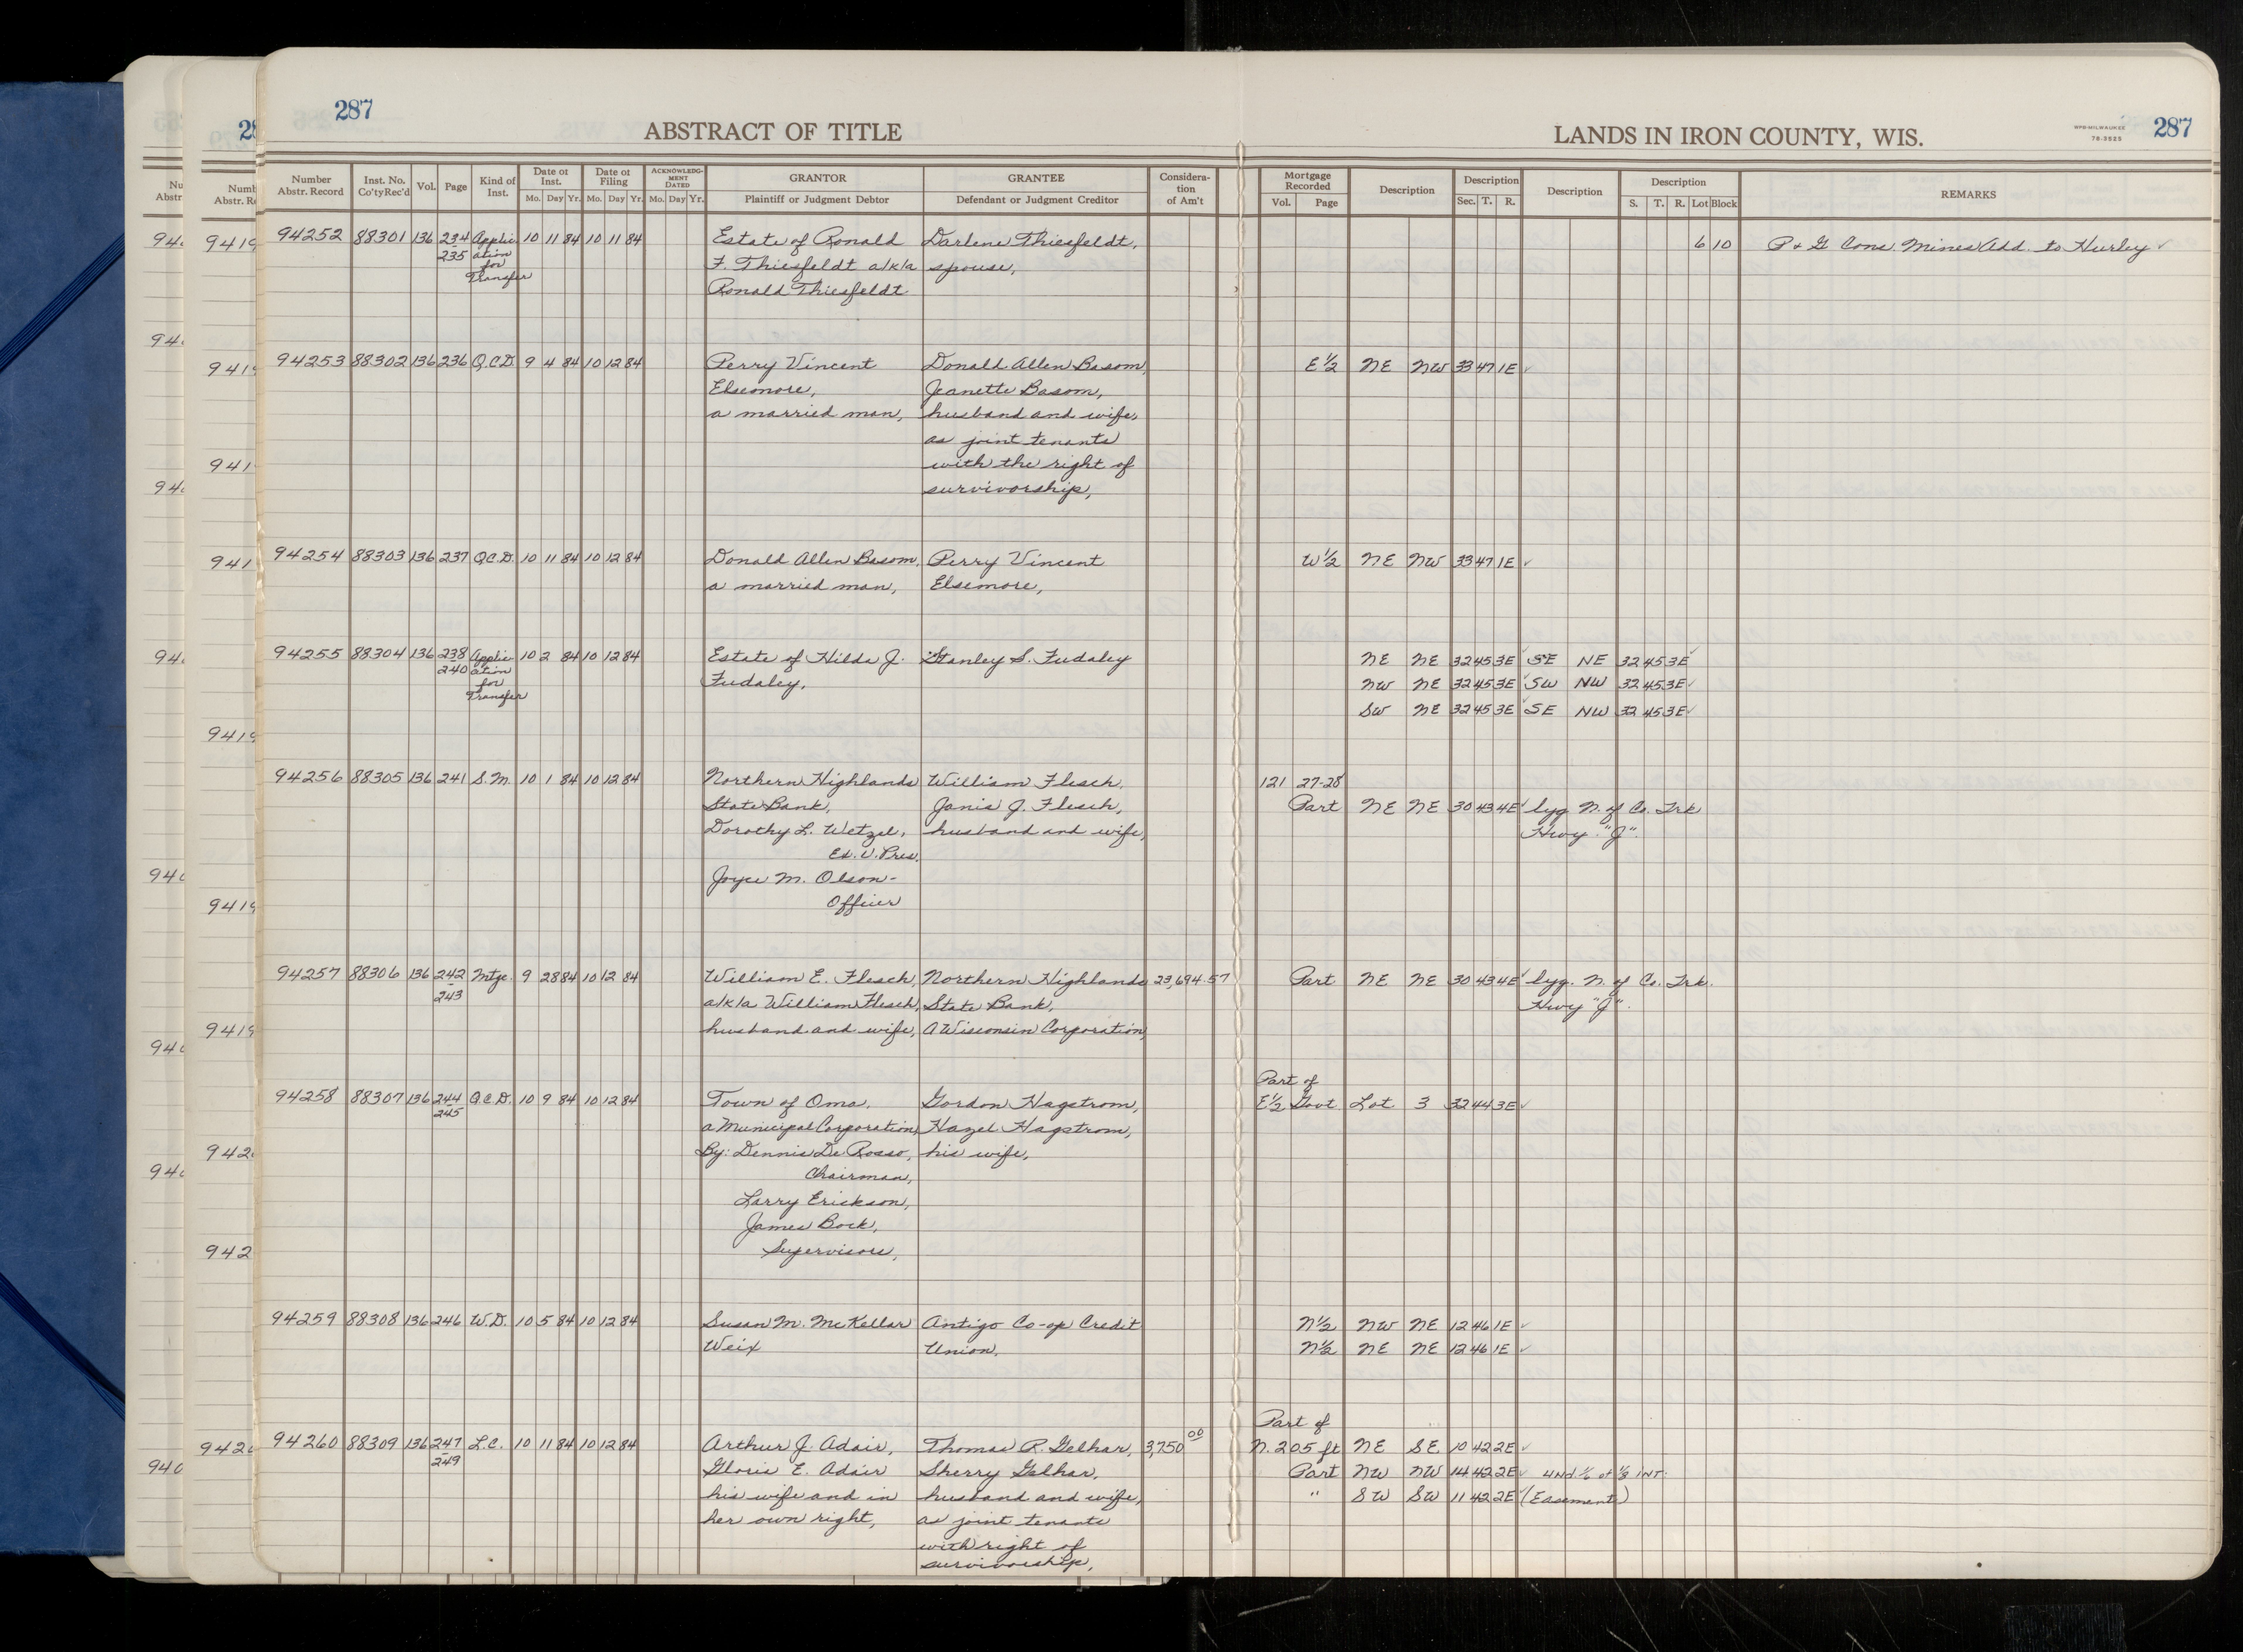 287
ABSTRACT OF TITLE
LANDS IN IRON COUNTY, WIS.
WPB-MILWAUKEE
76-3525
287
Number Abstr. Record Inst. No. Co'ty Rec'd Vol. Page Kind of Inst. Date of Inst. Mo. Day Yr. Date of Filing Mo. Day Yr. ACKNOWLEDGMENT DATED Mo. Day Yr. GRANTOR Plaintiff or Judgment Debtor GRANTEE Defendant or Judgment Creditor Consideration of Am't Mortgage Recorded Vol. Page Description Description Sec. T. R. Description Description S. T. R. Lot Block REMARKS
94252 88301 136 234 Applic- 10 11 84 10 11 84 Estate of Ronald Darlene Thiesfeldt, 6 10 P & G Cons. Mines Add. to Hurley ✓
235 ation F. Thiesfeldt a/k/a spouse,
for Ronald Thiesfeldt
Transfer
94253 88302 136 236 Q.C.D. 9 4 84 10 12 84 Perry Vincent Donald Allen Basom, E½ NE NW 33 47 1E ✓
Elsemore, Jeanette Basom,
a married man, husband and wife,
as joint tenants
with the right of
survivorship,
94254 88303 136 237 Q.C.D. 10 11 84 10 12 84 Donald Allen Basom, Perry Vincent W½ NE NW 33 47 1E ✓
a married man, Elsemore,
94255 88304 136 238 Applic- 10 2 84 10 12 84 Estate of Hilda J. Stanley S. Fudaley NE NE 32 45 3E ✓ SE NE 32 45 3E ✓
240 ation Fudaley, NW NE 32 45 3E ✓ SW NW 32 45 3E ✓
for SW NE 32 45 3E ✓ SE NW 32 45 3E ✓
Transfer
94256 88305 136 241 S.M. 10 1 84 10 12 84 Northern Highlands William Flesch, 121 27-28
State Bank, Janis J. Flesch, Part NE NE 30 43 4E ✓ lyg N. of Co. Trk
Dorothy L. Wetzel, husband and wife, Hwy. "J".
Ex. V. Pres.
Joyce M. Olson-
Officer
94257 88306 136 242 Mtge. 9 28 84 10 12 84 William E. Flesch, Northern Highlands 23,694.57 Part NE NE 30 43 4E ✓ lyg. N. of Co. Trk.
243 a/k/a William Flesch, State Bank, Hwy "J".
husband and wife, A Wisconsin Corporation,
Part of
94258 88307 136 244 Q.C.D. 10 9 84 10 12 84 Town of Oma, Gordon Hagstrom, E½ Govt Lot 3 32 44 3E ✓
245 a Municipal Corporation, Hazel Hagstrom,
By: Dennis De Rosso, his wife,
Chairman,
Larry Erickson,
James Bock,
Supervisors,
94259 88308 136 246 W.D. 10 5 84 10 12 84 Susan M. McKellar Antigo Co-op Credit N½ NW NE 12 46 1E ✓
Weix Union, N½ NE NE 12 46 1E ✓
Part of
94260 88309 136 247 L.C. 10 11 84 10 12 84 Arthur J. Adair, Thomas R. Gelhar, 3,750.00 N. 205 ft NE SE 10 42 2E ✓
249 Gloria E. Adair Sherry Gelhar, Part NW NW 14 42 2E ✓ UND ⅙ of ⅓ INT.
his wife and in husband and wife, " SW SW 11 42 2E ✓ (Easement)
her own right, as joint tenants
with right of
survivorship,